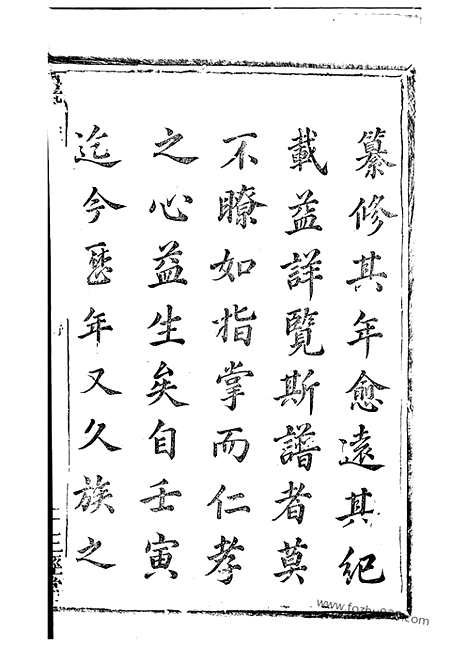 纂修其年愈遠其紀
載益詳覽斯譜者莫
不瞭如指掌而仁孝
之心益生矣自壬寅
迄今歷年又久族之
序